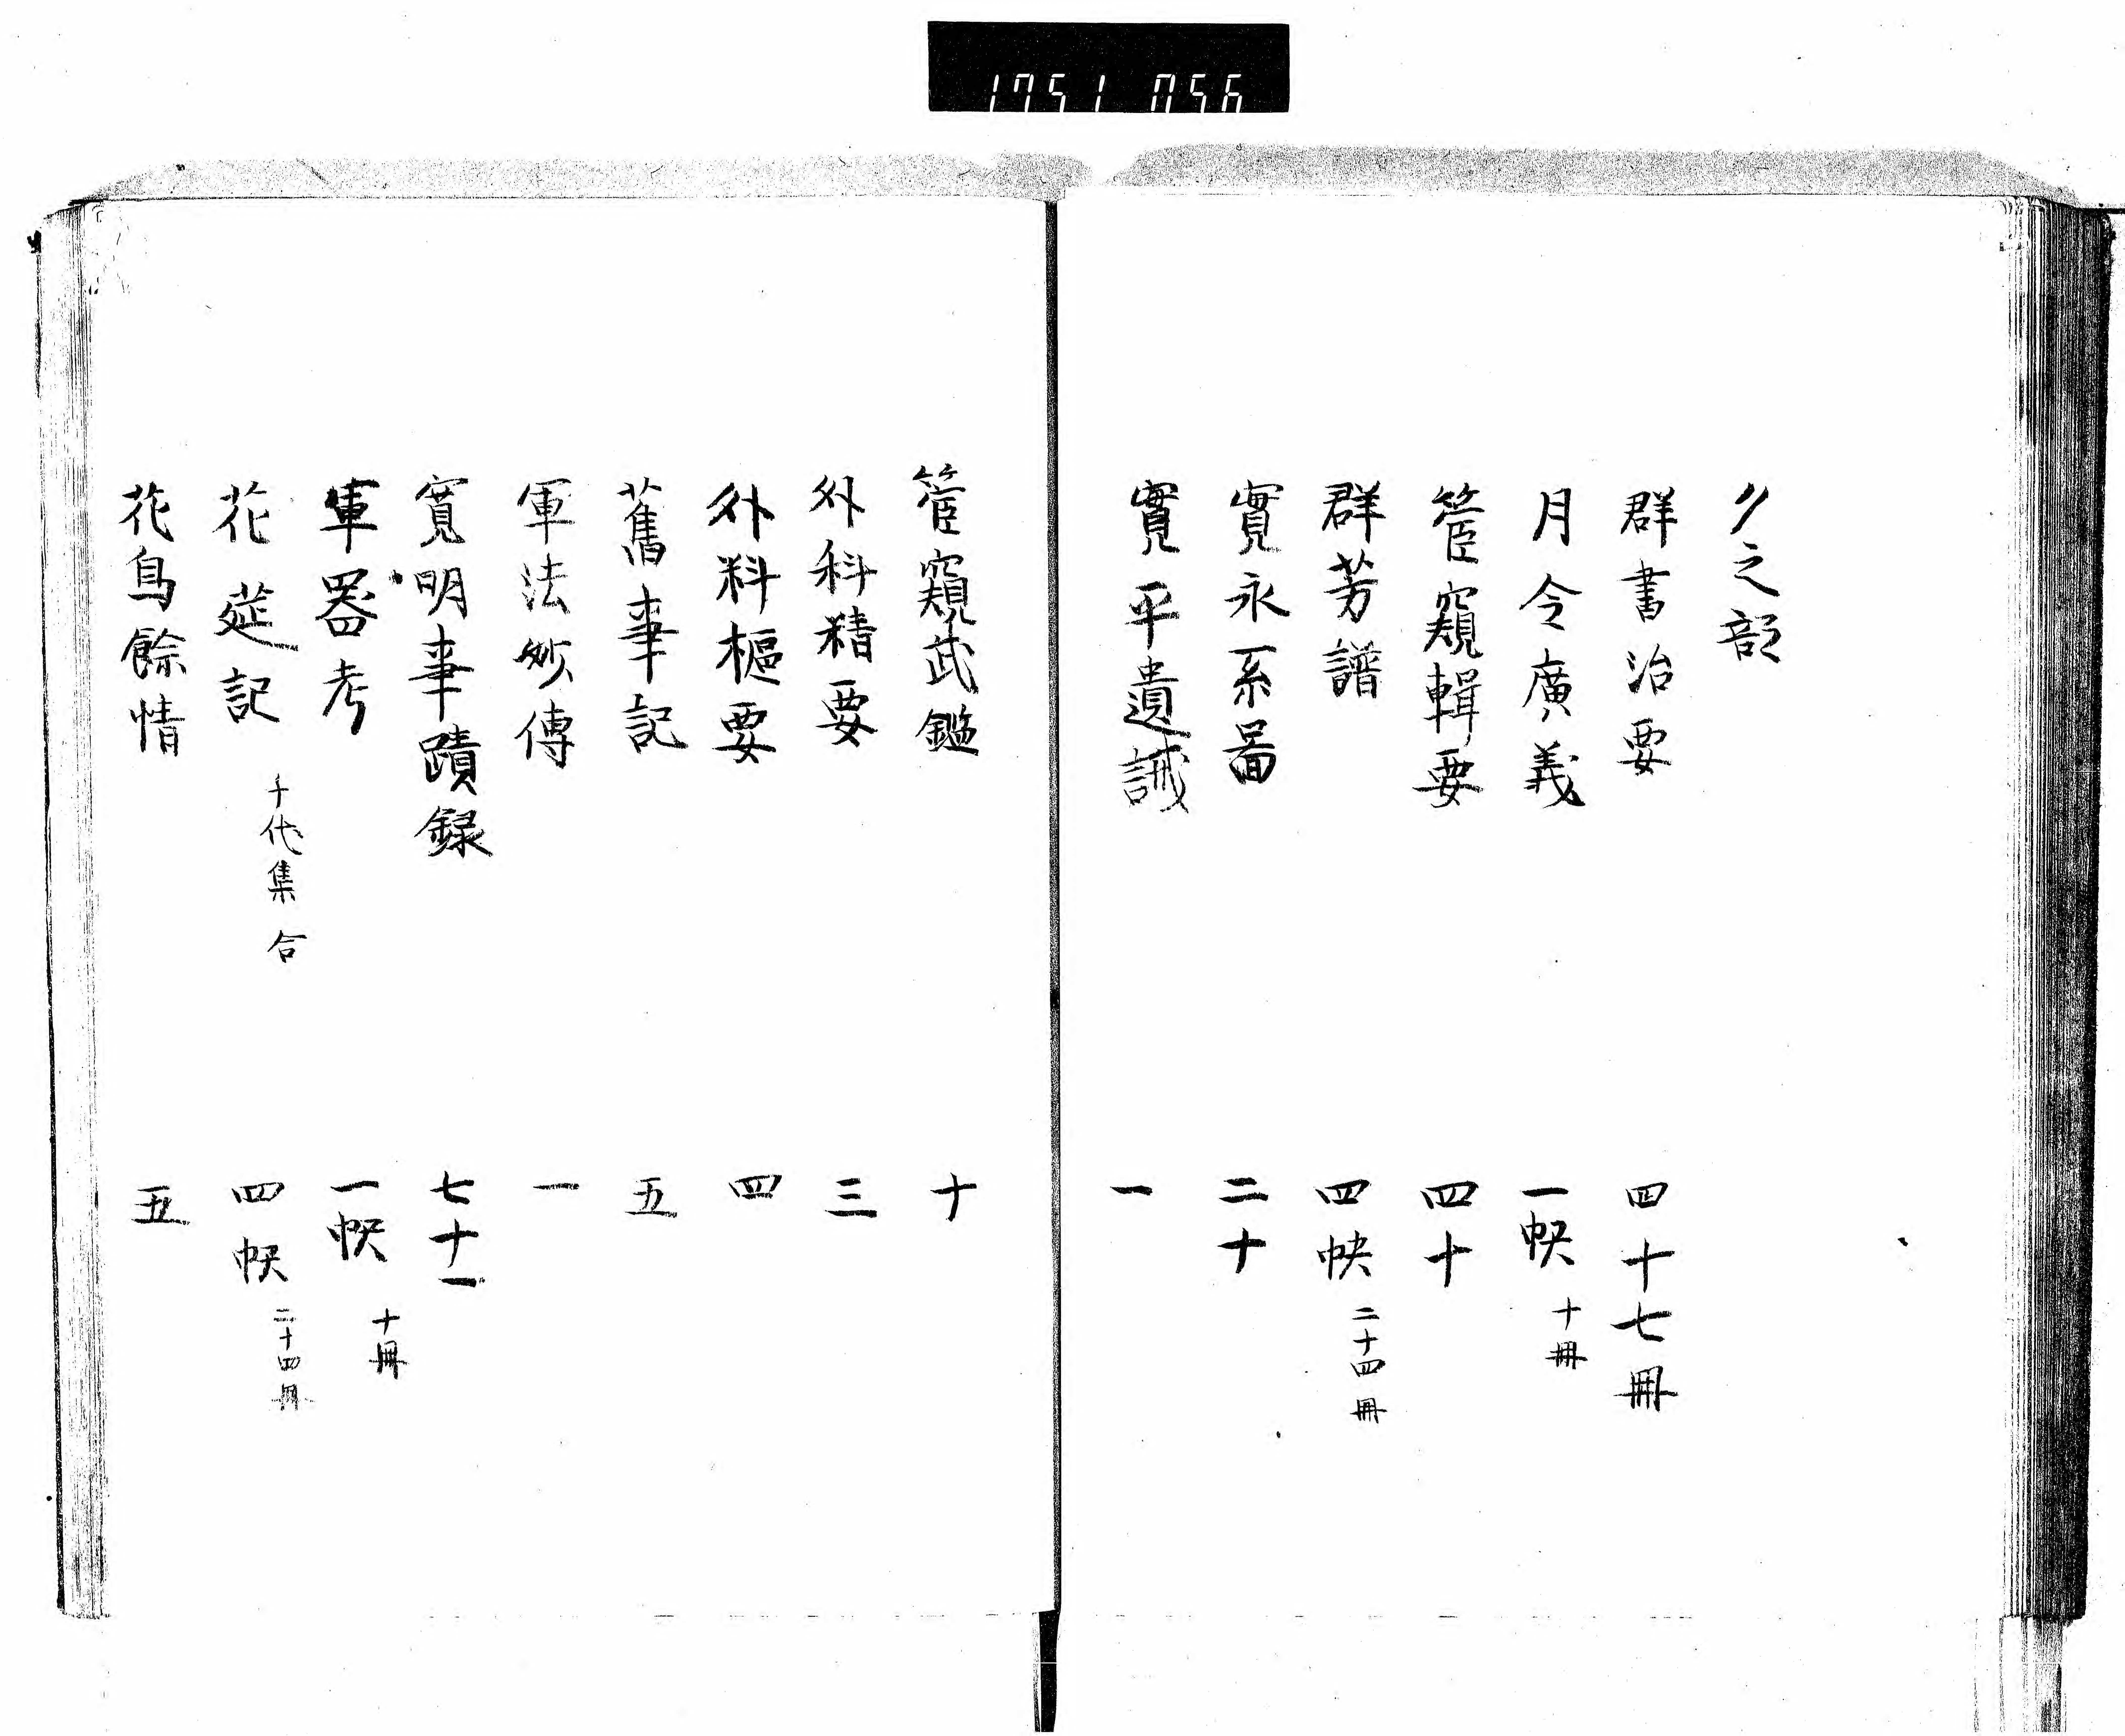 1751 056
ク之部
群書治要 四十七冊
月令廣義 一帙 十冊
管窺輯要 四十
群芳譜 四帙 二十四冊
寛永系啚 二十
寛平遺誡 一
管窺武鑑 十
外科精要 三
外科樞要 四
舊事記 五
軍法妙傳 一
寛明事蹟録 七十一
軍器考 一帙 十冊
花莚記 千代集合 四帙 二十四冊
花鳥餘情 五